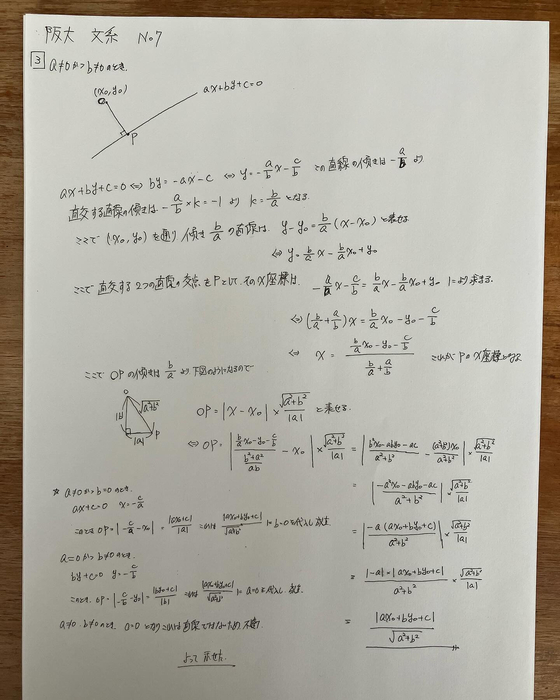 阪大 文系 No7
3 a≠0かつb≠0のとき、
(x₀, y₀)
ax+by+c=0
P
ax+by+c=0 ⇔ by=-ax-c ⇔ y=-a/b x-c/b この直線の傾きは -a/b より
直交する直線の傾きは -a/b × k = -1 より k = b/a となる
ここで (x₀, y₀) を通り 傾き b/a の直線は y-y₀ = b/a (x-x₀) と表せる
⇔ y = b/a x - b/a x₀ + y₀
ここで直交する2つの直線の交点をPとして、そのx座標は、 -a/b x - c/b = b/a x - b/a x₀ + y₀ より求まる。
⇔ (b/a + a/b) x = b/a x₀ - y₀ - c/b
⇔ x = (b/a x₀ - y₀ - c/b) / (b/a + a/b) これがPのx座標となる
ここで OPの傾きは b/a より 下図のようになるので
O
|b|
√(a²+b²)
|a|
P
OP = |x - x₀| × √(a²+b²)/|a| と表せる。
⇔ OP = | (b/a x₀ - y₀ - c/b) / ((b²+a²)/ab) - x₀ | × √(a²+b²)/|a| = | (b²x₀ - aby₀ - ac)/(a²+b²) - (a²+b²)x₀/(a²+b²) | × √(a²+b²)/|a|
= | (-a²x₀ - aby₀ - ac)/(a²+b²) | × √(a²+b²)/|a|
= | -a(ax₀+by₀+c)/(a²+b²) | × √(a²+b²)/|a|
= |-a| × |ax₀+by₀+c| / (a²+b²) × √(a²+b²)/|a|
= |ax₀+by₀+c| / √(a²+b²)
* a≠0かつb=0のとき、
ax+c=0 x=-c/a
このとき OP = |-c/a - x₀| = |ax₀+c|/|a| = |ax₀+by₀+c|/√(a²+b²) に b=0を代入し
a=0かつb≠0のとき、
by+c=0 y=-c/b
このとき OP = |-c/b - y₀| = |by₀+c|/|b| = |ax₀+by₀+c|/√(a²+b²) に a=0を代入し
よって 示せた